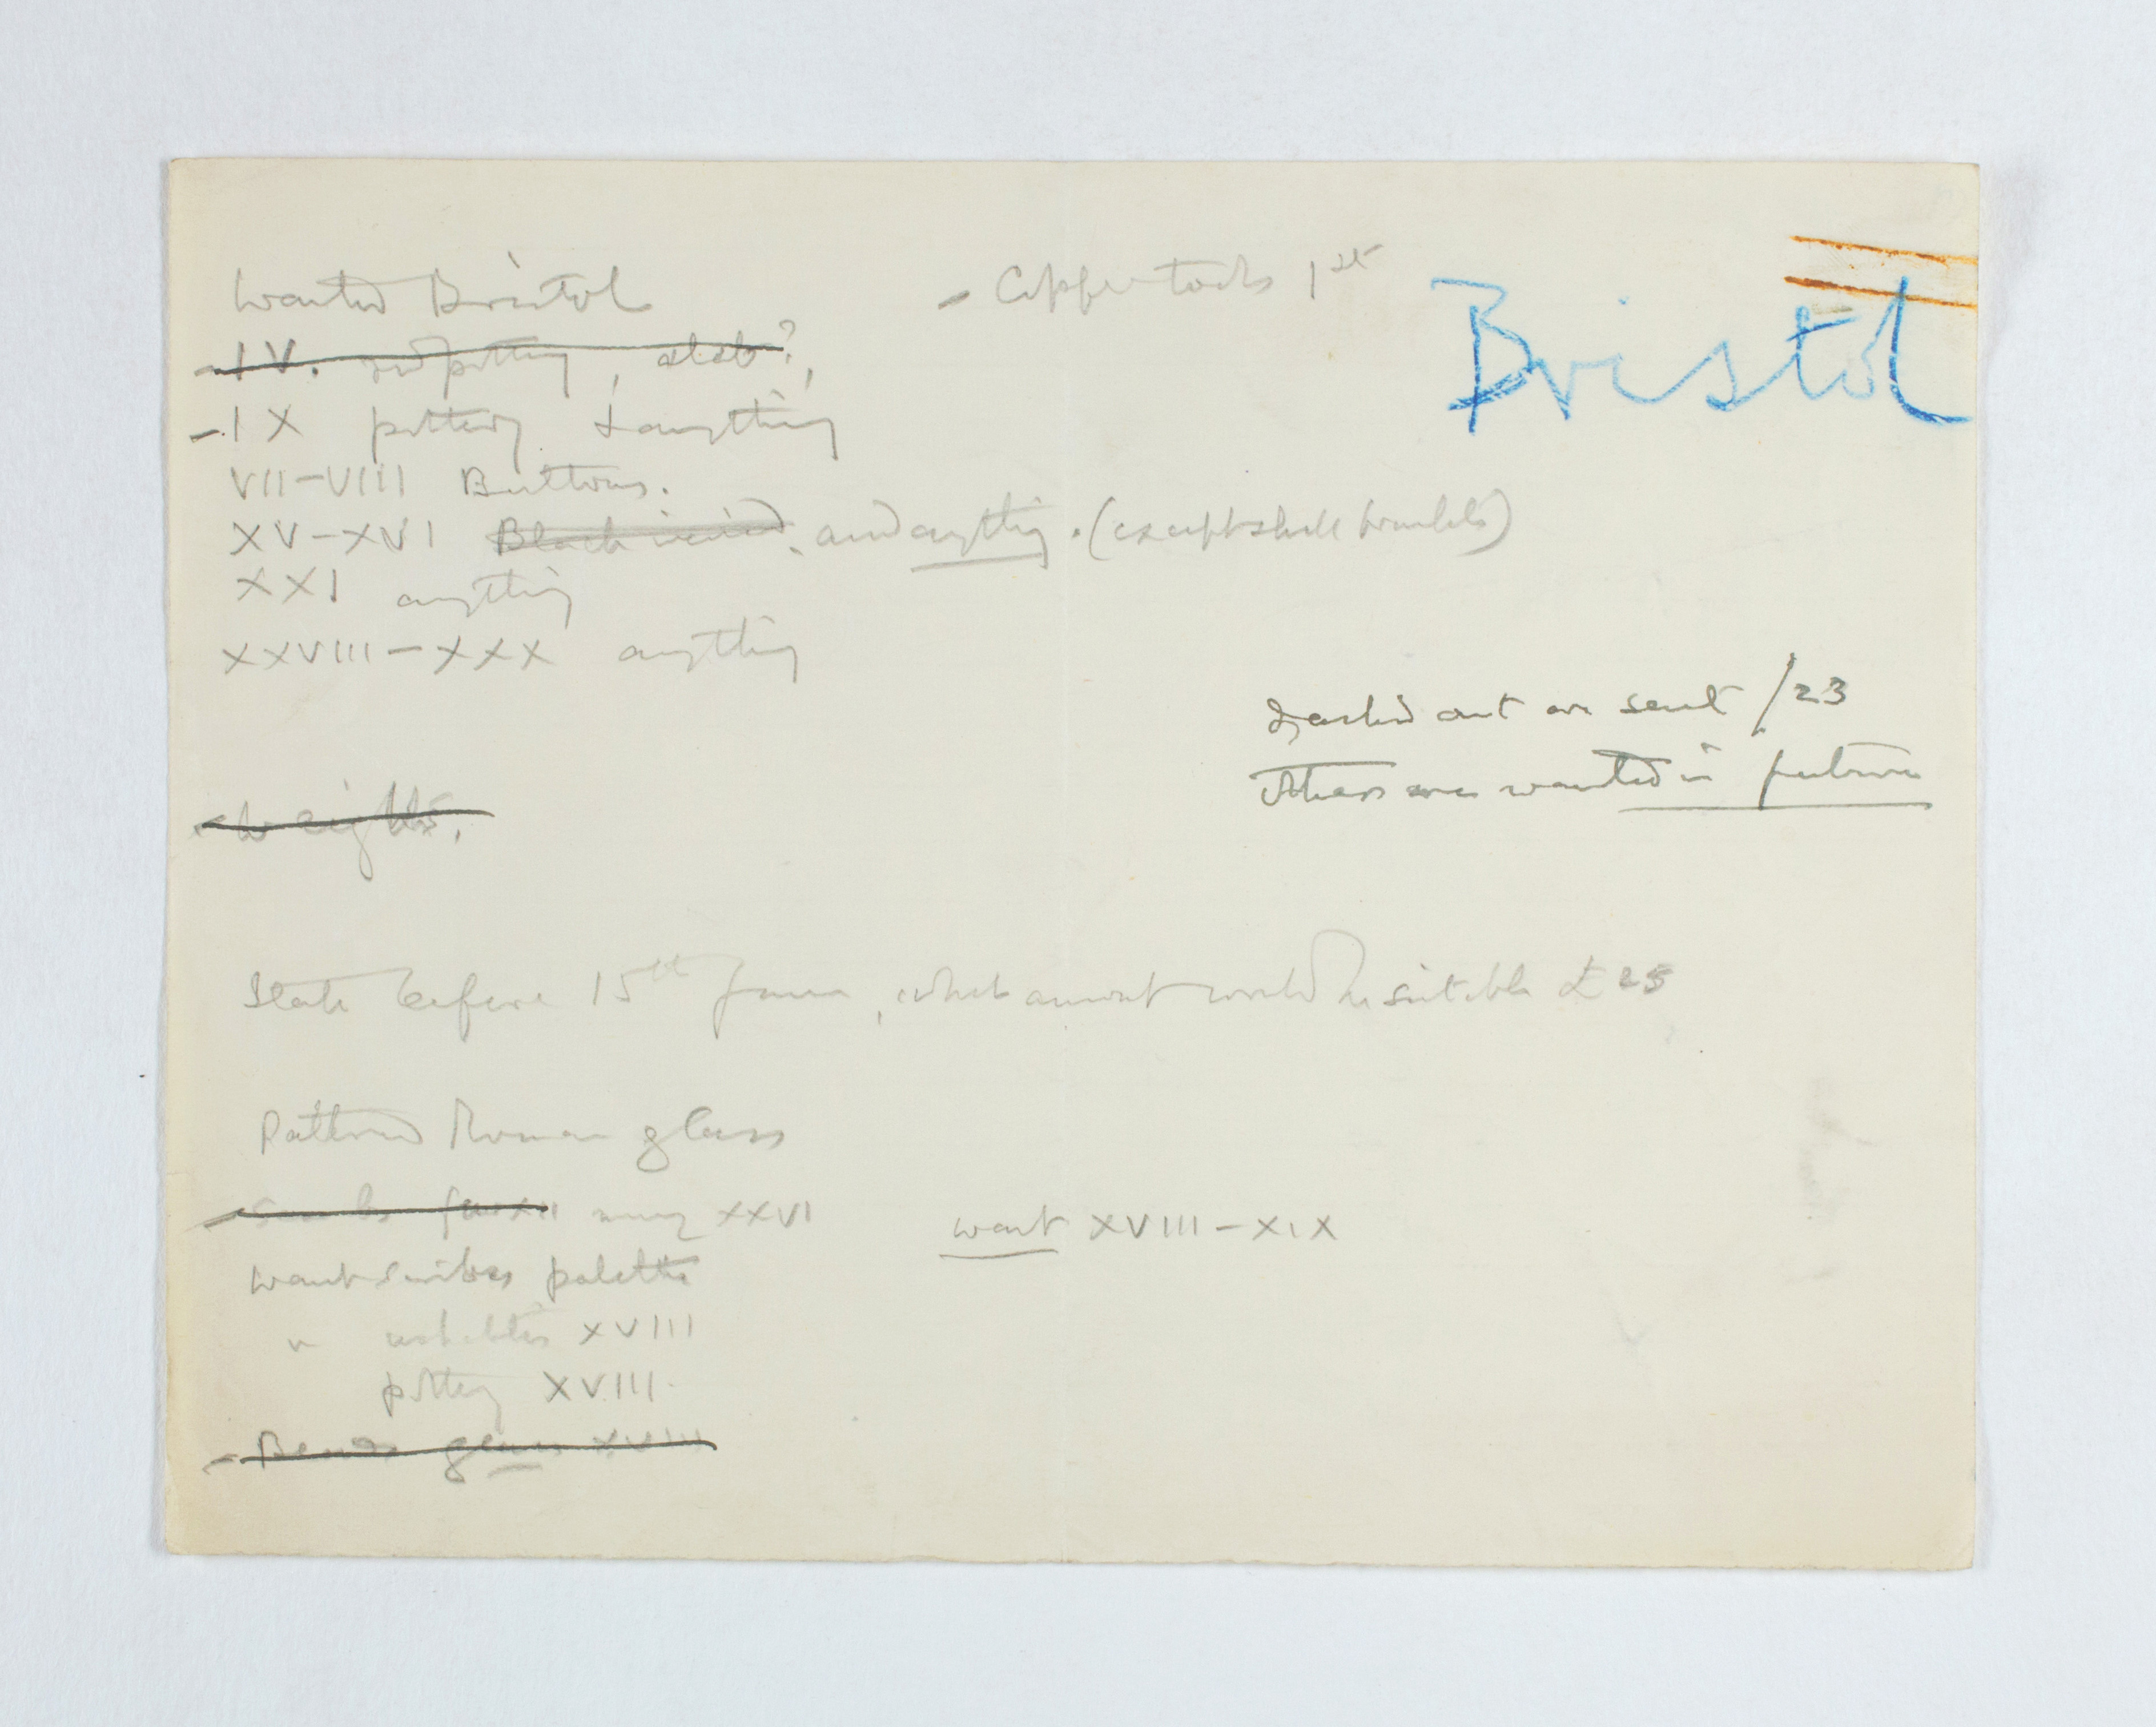 Wanted Bristol
- Copper tools 1st
Bristol
- IV. red pottery, slab?,
- IX pottery & anything
VII-VIII Buttons.
XV-XVI Black incised. and anything. (except shell bracelets)
XXI anything
XXVIII-XXX anything
Dashed out are sent /23
Others are wanted in future
- Weights.
State before 15th June, what amount would be suitable £25
Patterned Roman glass
XII many XXVI
want XVIII-XIX
Want scribes palette
" ushabtis XVIII
pottery XVIII
- Beads glass XVIII